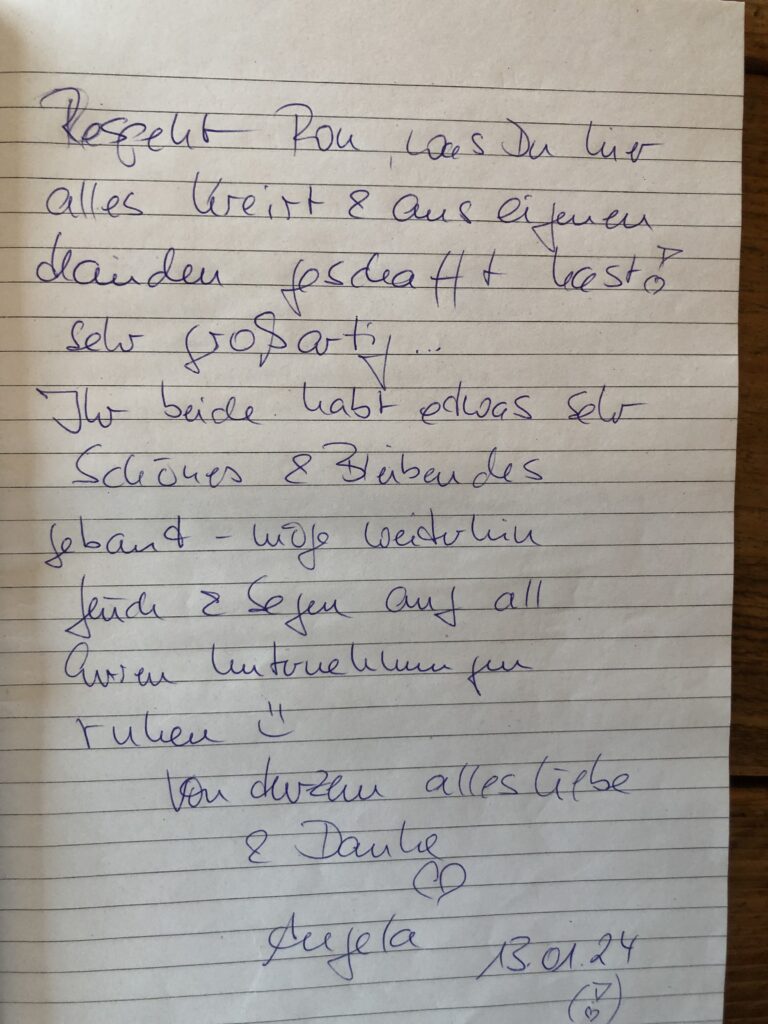 Respekt Ron, was Du hier
alles kreirt & aus eigenen
Händen geschafft hast!
sehr großartig...
Ihr beide habt etwas sehr
Schönes & Bleibendes
gebaut - möge weiterhin
Glück & Segen auf all
Euren Unternehmungen
ruhen
Von Herzen alles Liebe
& Danke
Angela 13.01.24